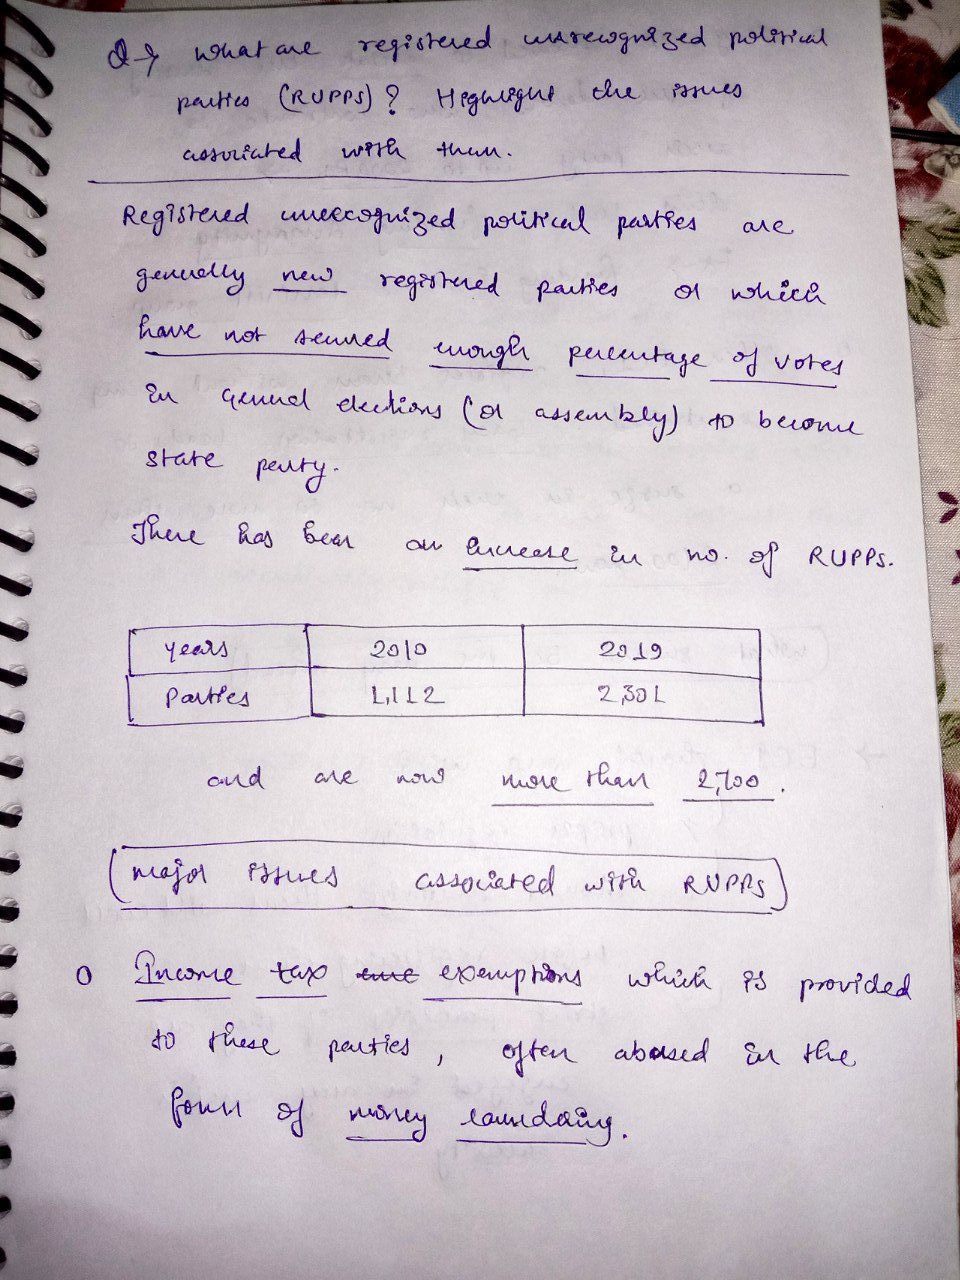 Q→ what are registered unrecognized political
parties (RUPPS)? Highlight the issues
associated with them.
Registered unrecognized political parties are
generally new registered parties or which
have not secured enough percentage of votes
in general elections (or assembly) to become
state party.
There has been an increase in no. of RUPPs.
years 2010 2019
Parties 1,112 2,301
and are now more than 2,700.
major issues associated with RUPPs
O Income tax exemptions which is provided
to these parties, often abused in the
form of money laundaing.